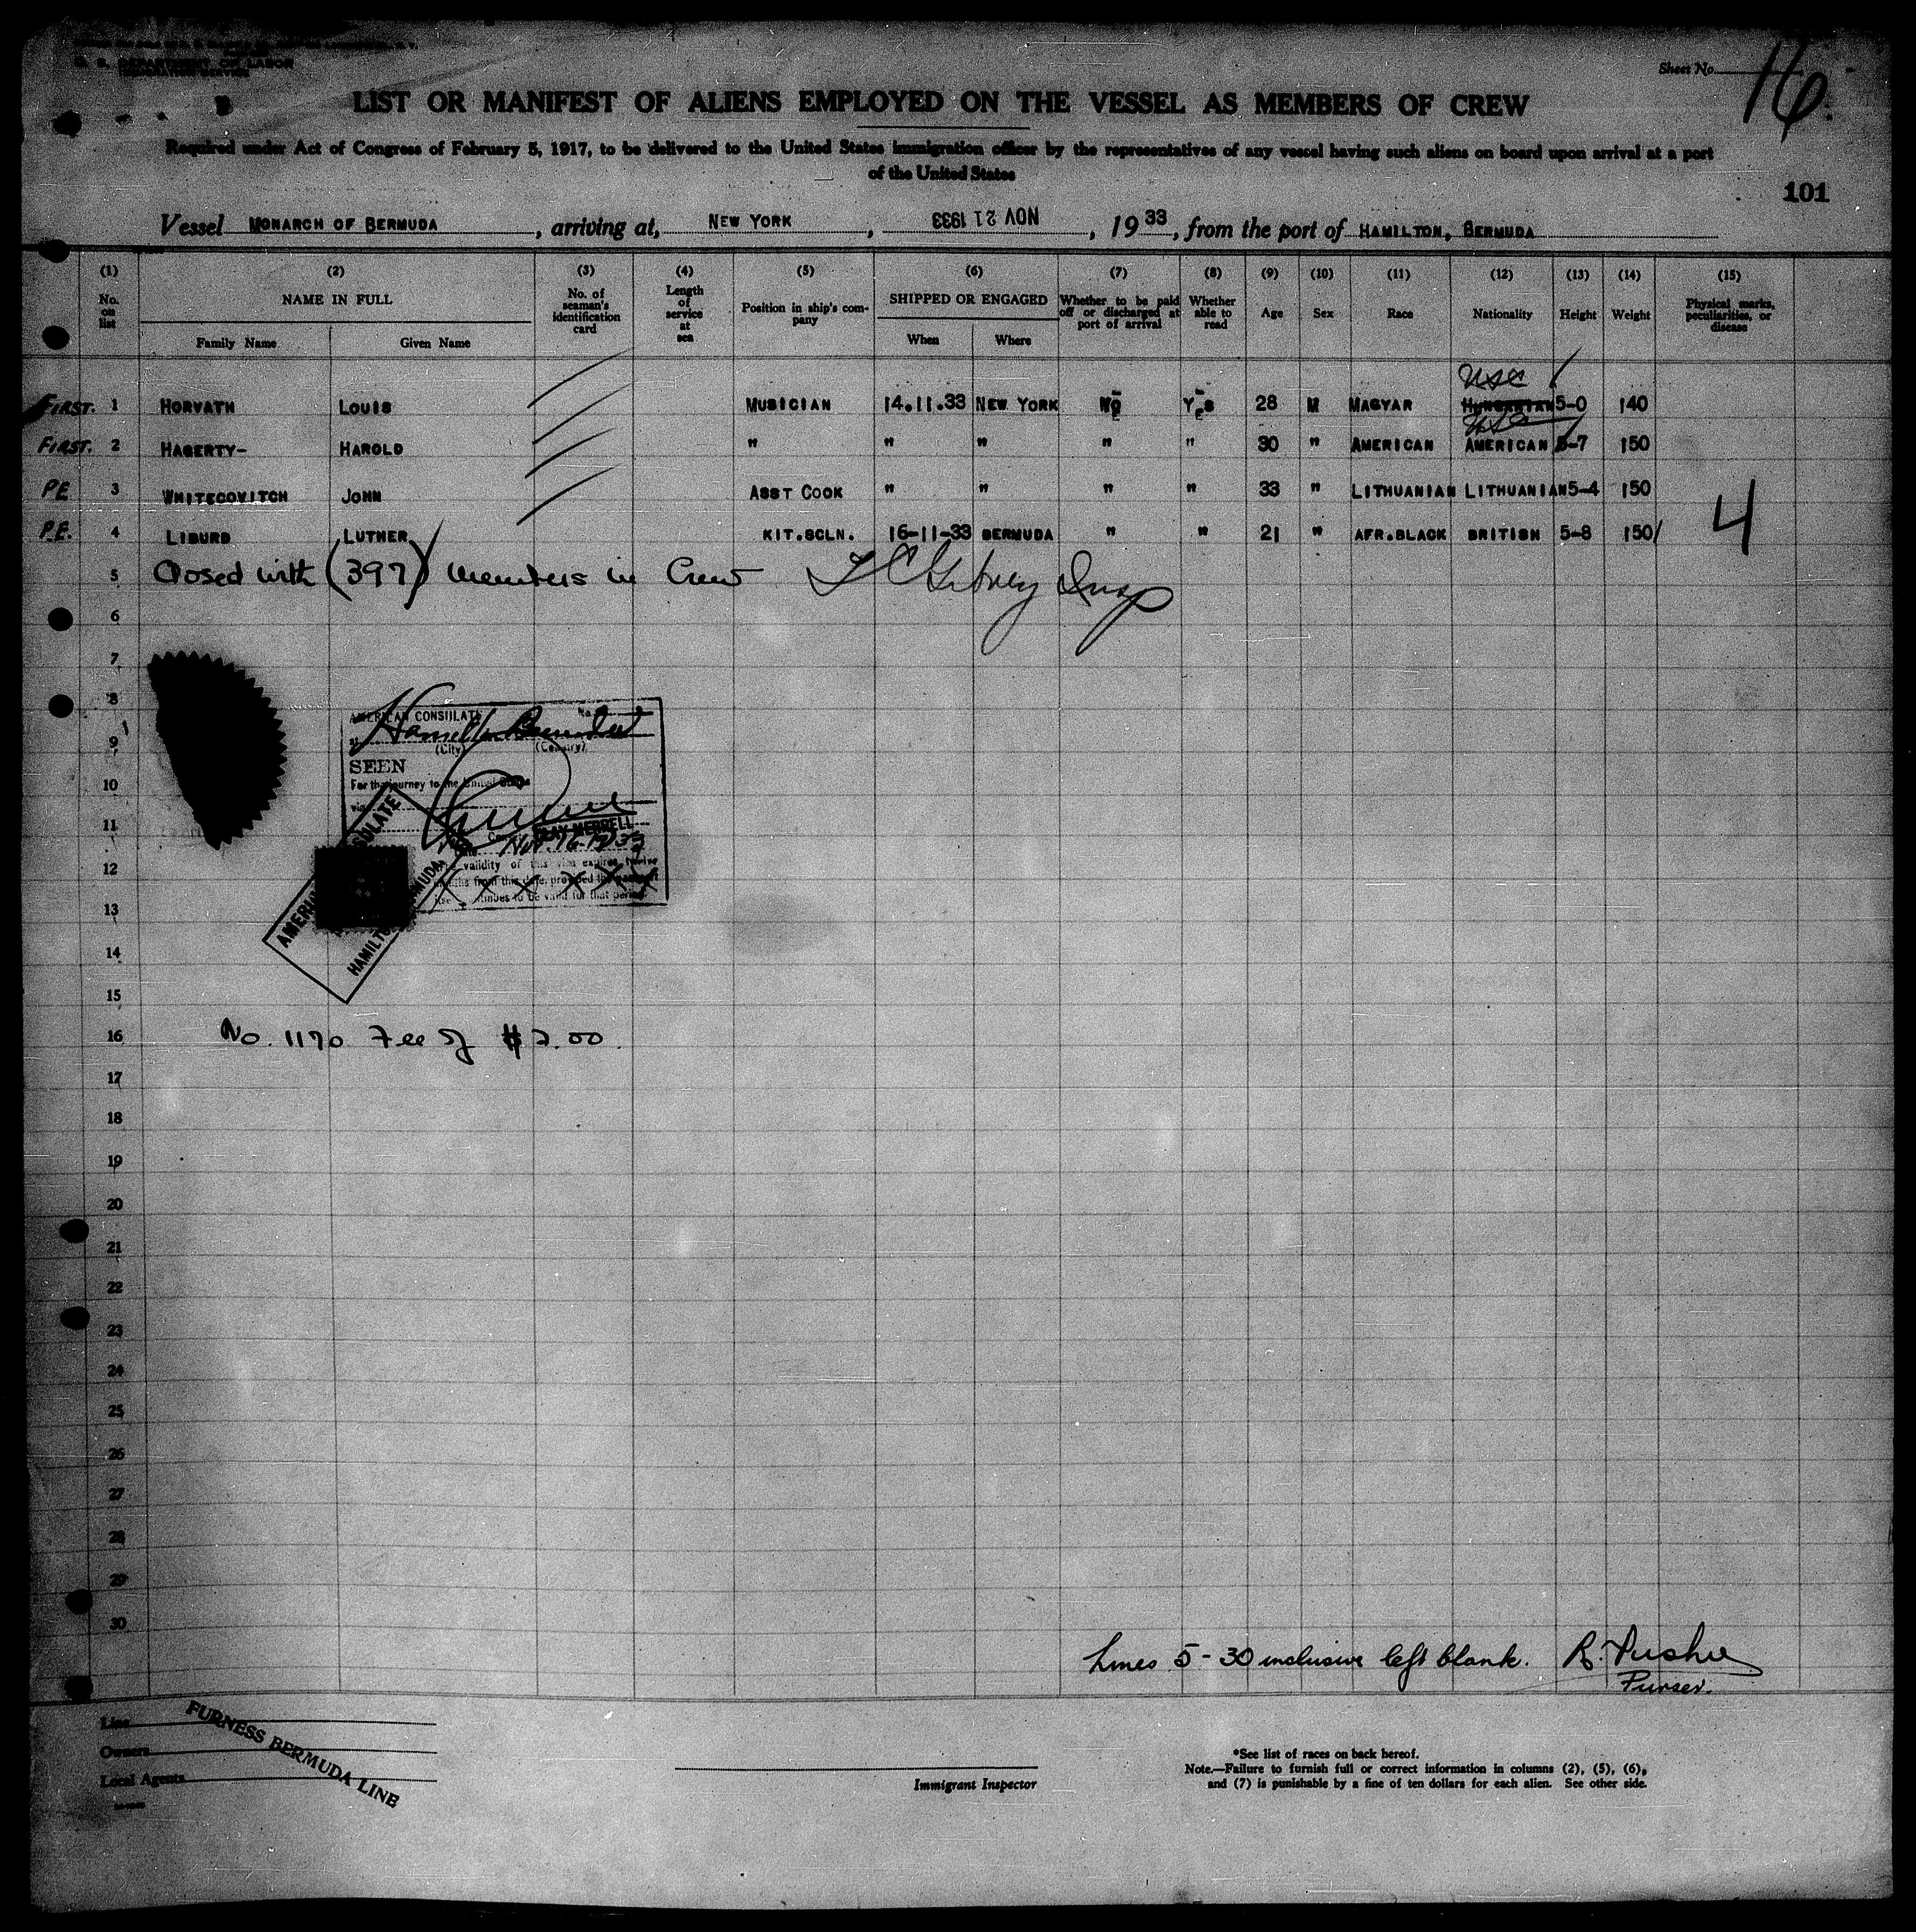 U. S. DEPARTMENT OF LABOR
IMMIGRATION SERVICE
Sheet No. 16
LIST OR MANIFEST OF ALIENS EMPLOYED ON THE VESSEL AS MEMBERS OF CREW
Required under Act of Congress of February 5, 1917, to be delivered to the United States immigration officer by the representatives of any vessel having such aliens on board upon arrival at a port
of the United States
101
Vessel MONARCH OF BERMUDA, arriving at, NEW YORK, NOV 21 1933, 1933, from the port of HAMILTON, BERMUDA
(1) (2) (3) (4) (5) (6) (7) (8) (9) (10) (11) (12) (13) (14) (15)
No. on list NAME IN FULL No. of seaman's identification card Length of service at sea Position in ship's company SHIPPED OR ENGAGED Whether to be paid off or discharged at port of arrival Whether able to read Age Sex Race Nationality Height Weight Physical marks, peculiarities, or disease
Family Name Given Name When Where
USC
FIRST. 1 HORVATH LOUIS MUSICIAN 14.11.33 NEW YORK NO YES 28 M MAGYAR HUNGARIAN 5-0 140
USC
FIRST. 2 HAGERTY- HAROLD " " " " " 30 " AMERICAN AMERICAN 5-7 150
PE 3 WHITECOVITCH JOHN ASST COOK " " " " 33 " LITHUANIAN LITHUANIAN 5-4 150
P.E. 4 LIBURD LUTHER KIT.SCLN. 16-11-33 BERMUDA " " 21 " AFR.BLACK BRITISH 5-8 150/ 4
5 Closed with (397) members in Crew Insp
6
7
8
AMERICAN CONSULATE No.
9 Hamilton Bermuda
(City) (Country)
SEEN
10 For the journey to the United States
via
11
CLAY MERRELL
Nov. 16-1933
12 validity of this visa expires twelve
months from this date, provided the passport
continues to be valid for that period.
AMERICAN CONSULATE
HAMILTON, BERMUDA.
13
14
15
16 No. 1170 Fee of $2.00
17
18
19
20
21
22
23
24
25
26
27
28
29
30
Lines 5-30 inclusive left blank. R.
Purser.
Line
Owners
Local Agents
FURNESS BERMUDA LINE
Immigrant Inspector
*See list of races on back hereof.
Note.—Failure to furnish full or correct information in columns (2), (5), (6),
and (7) is punishable by a fine of ten dollars for each alien. See other side.